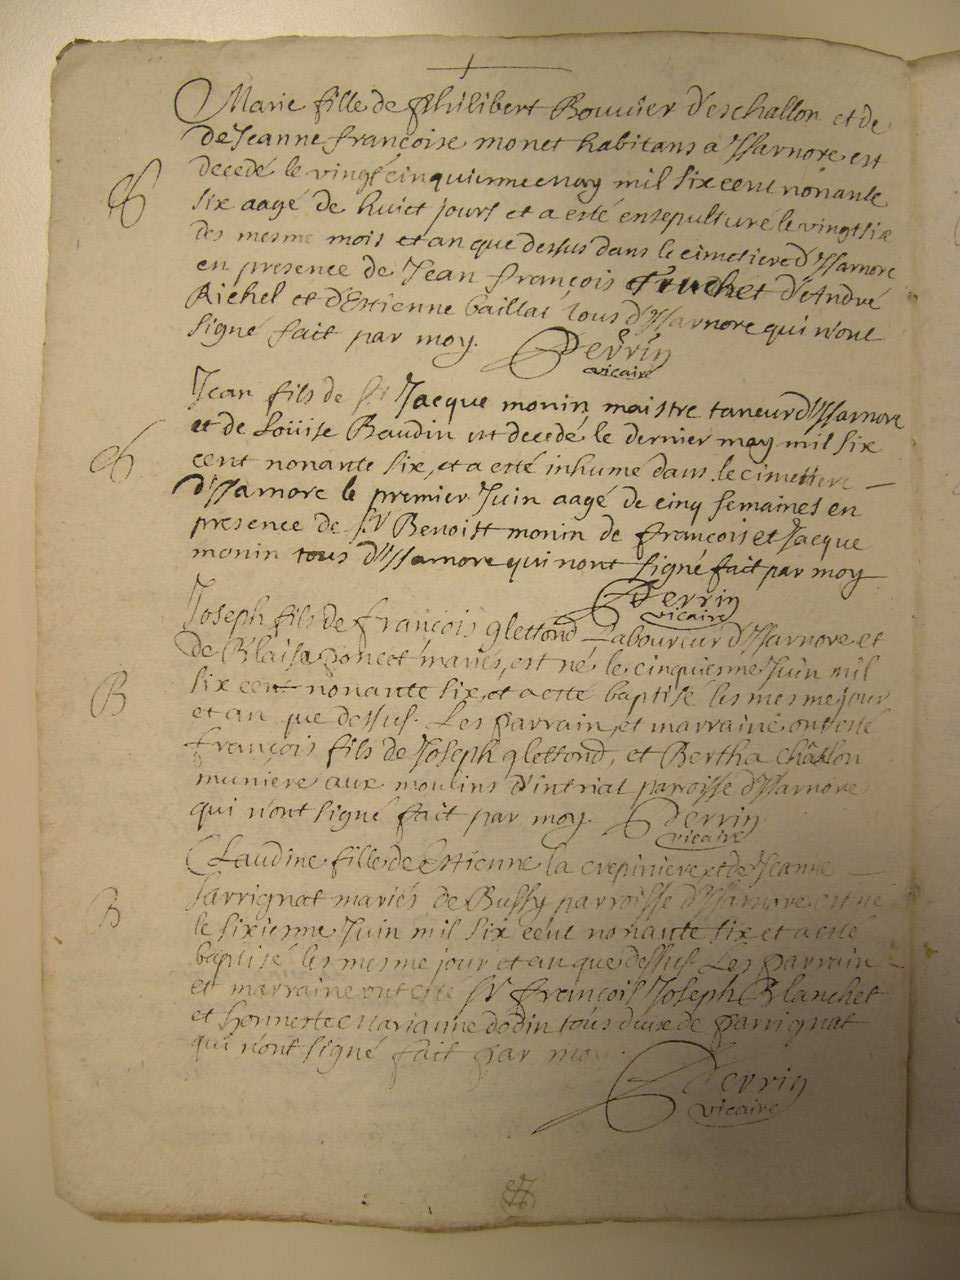 Marie fille de Philibert Bouvier d'eschallon et de
de Jeanne françoise monet habitans a Ysarnore est
decedé le vingt cinquienme may mil six cent nonante
six aagé de huict jours et a esté ensepulturé le vingt six
des mesme mois et an que dessus dans le cimetiere d'Ysarnore
en presence de Jean françois Truchet d'André
Richel et d'Estienne baillat tous d'Ysarnore qui n'ont
signé fait par moy. Perrin
vicaire
Jean fils de Sr Jacque monin maistre taneur d'Ysarnore
et de Loüise Baudin est decedé le dernier may mil six
cent nonante six, et a esté inhumé dans le cimettiere
d'Ysarnore le premier Juin aagé de cinq semaines en
presence de Sr Benoistt monin de françois et Jacque
monin tous d'Ysarnore qui nont signé fait par moy
Perrin
vicaire
Joseph fils de françois glettond Laboureur d'Ysarnore et
de Blaisa poncet mariés, est né le cinquienme Juin mil
B six cent nonante six, et a esté baptisé les mesme jour
et an que dessus. Les parrain, et marraine ont esté
françois fils de Joseph glettond, et Bertha châllon
muniere aux moulins d'intriat paroisse d'Ysarnore
qui n'ont signé fait par moy. Perrin
vicaire
Claudine fille de Estienne la crepiniere et de Jeanne
B Sarrignat mariés de Bussy parroisse d'Ysarnore est né
le sixienme Juin mil six cent nonante six et a esté
baptisé les mesme jour et an que dessus Les parrain
et marraine ont esté Sr françois Joseph Blanchet
et honneste Marianne dodin tous deux de Sarrignat
qui n'ont signé fait par moy.
Perrin
vicaire